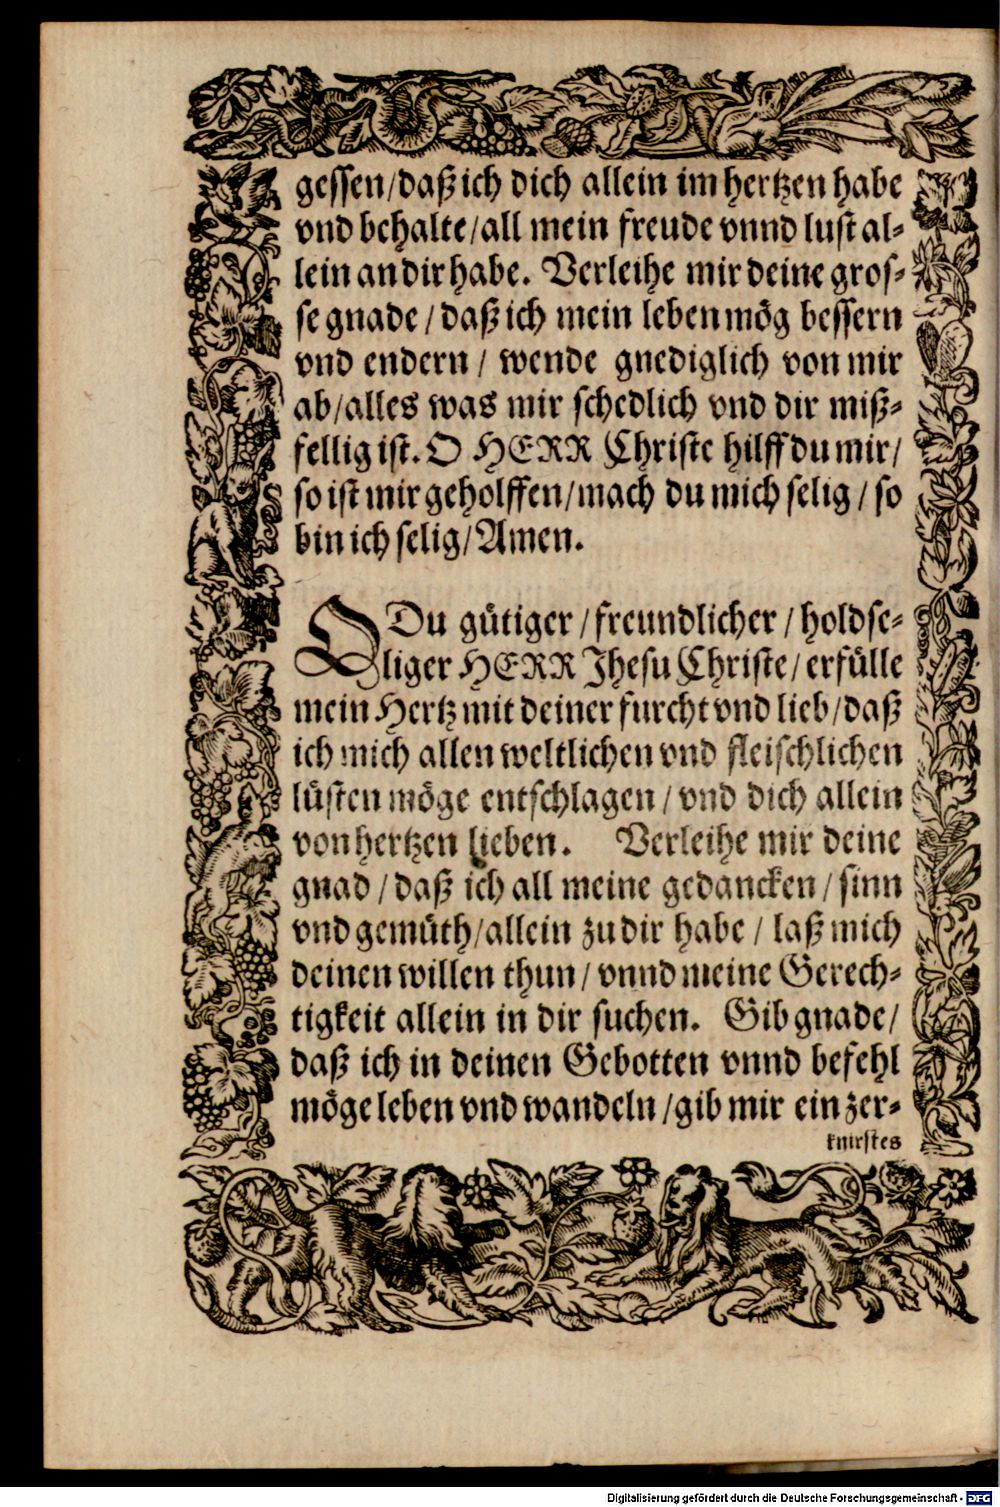 gessen/daß ich dich allein im hertzen habe
vnd behalte/all mein freude vnnd lust al-
lein an dir habe. Verleihe mir deine gros-
se gnade/daß ich mein leben mög bessern
vnd endern/ wende gnediglich von mir
ab/alles was mir schedlich vnd dir miß-
fellig ist. O HERR Christe hilff du mir/
so ist mir geholffen/mach du mich selig/so
bin ich selig/Amen.
O Du gütiger/freundlicher/holdse-
liger HERR Jhesu Christe/erfülle
mein Hertz mit deiner furcht vnd lieb/daß
ich mich allen weltlichen vnd fleischlichen
lüsten möge entschlagen/vnd dich allein
von hertzen lieben. Verleihe mir deine
gnad/daß ich all meine gedancken/sinn
vnd gemüth/allein zu dir habe/ laß mich
deinen willen thun/vnnd meine Gerech-
tigkeit allein in dir suchen. Gib gnade/
daß ich in deinen Gebotten vnnd befehl
möge leben vnd wandeln/gib mir ein zer-
knirstes
Digitalisierung gefördert durch die Deutsche Forschungsgemeinschaft - DFG